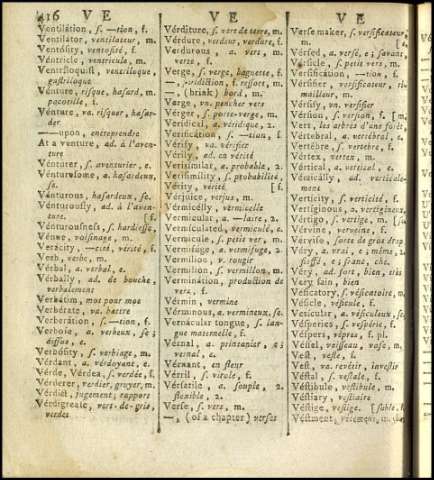 416 V E V E V E
Ventilátion, s. —tion, f.
Ventilátor, ventilateur, m.
Ventósity, ventosité, f.
Véntricle, ventricule, m.
Ventríloquist, ventriloque,
gastrilóque
Vénture, risque, hasard, m.
pacotille, f.
Vénture, va. risquer, hasar-
der
——upon, entreprendre
At a venture, ad. à l'aven-
ture
Vénturer, s. avanturier, e.
Vénturesome, a. hasardeux,
se.
Vénturous, hasardeux, se.
Vénturously, ad. à l'aven-
ture. [f.
Vénturousness, s. hardiesse,
Vénue, voisinage, m.
Verácity, —cité, vérité, f.
Verb, verbe, m.
Vérbal, a. verbal, e.
Vérbally, ad. de bouche,
verbalement
Verbátim, mot pour mot
Vérberate, va. battre
Verberátion, s. —tion, f.
Verbóse, a. verbeux, se ;
diffus, e.
Verbósity, s. verbiage, m.
Vérdant, a. verdoyant, e.
Vérde, Vérdea, s. verdée, f.
Vérderer, verdier, gruyer, m.
Vérdict, jugement, rapport
Vérdigrease, vert-de-gris,
verdet
Vérditure, s. vert de terre, m.
Vérdure, verdeur, verdure, f.
Vérdurous, a. vert, m.
verte, f.
Verge, s. verge, baguette, f.
—, juridiction, f. ressort, m.
—, (brink) bord, m.
Verge, vn. pencher vers
Vérger, s. porte-verge, m.
Verídical, a. véridique, 2.
Verificátion, s. —tion, f.
Vérify, va. vérifier
Vérily, ad. en vérité
Verisímilar, a. probable, 2.
Verisimílity, s. probabilité,
Vérity, vérité [f.
Vérjuice, verjus, m.
Vérmicelly, vermicelle
Vermícular, a. —laire, 2.
Vermículated, vermiculé, e.
Vérmicule, s. petit ver, m.
Vérmifuge, a. vermifuge, 2.
Vermílion, v. rougir
Vermílion, s. vermillon, m.
Verminátion, production de
vers, f.
Vérmin, vermine
Vérminous, a. vermineux, se.
Vernácular tongue, s. lan-
gue maternelle, f.
Vérnal, a. printanier, e ;
vernal, e.
Vérnant, en fleur
Vérril, s. virole, f.
Vérsatile, a. souple, 2.
flexible, 2.
Verse, s. vers, m.
—, (of a chapter) verset
Verse maker, s. versificateur,
m. [e.
Vérsed, a. versé, e ; savant,
Vérsicle, s. petit vers, m.
Versificátion, —tion, f.
Vérsifier, versificateur, ri-
mailleur, m.
Vérsify, vn. versifier
Vérsion, s. version, f. [m.
Vert, les arbres d'une forêt,
Vértebral, a. vertébral, e.
Vértebre, s. vertebre, f.
Vértex, vertex, m.
Vértical, a. vertical, e.
Vértically, ad. verticale-
ment
Vertícity, s. verticité, f.
Vertíginous, a. vertigineux,
Vértigo, s. vertige, m. [se.
Vérvine, verveine, f.
Véryiso, sorte de gros drap
Véry, a. vrai, e ; même, 2.
fieffé, e ; franc, che.
Véry, ad. fort, bien, très
Véry fain, bien
Vésicatory, s. vésicatoire, m.
Vésicle, vésicule, f.
Vesícular, a. vésiculeux, se.
Vésperies, s. vespérie, f.
Véspers, vêpres, f. pl.
Véssel, vaisseau, vase, m.
Vest, veste, f.
Vest, va. revêtir, investir
Véstal, s. vestale, f.
Véstibule, vestibule, m.
Véstiary, vestiaire
Véstige, vestige. [sable, f.
Véstment, vêtement, m.